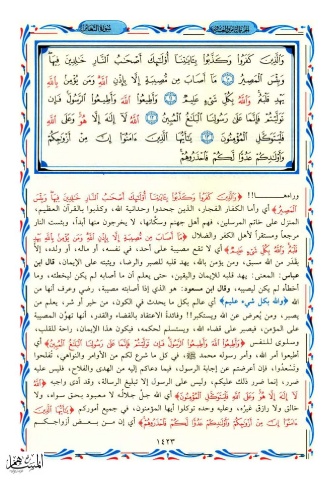 سورة التغابن
وَالَّذِينَ كَفَرُوا وَكَذَّبُوا بِآيَاتِنَا أُولَٰئِكَ أَصْحَابُ النَّارِ خَالِدِينَ فِيهَا
وَبِئْسَ الْمَصِيرُ ۝١٠ مَا أَصَابَ مِن مُّصِيبَةٍ إِلَّا بِإِذْنِ اللَّهِ وَمَن يُؤْمِن بِاللَّهِ
يَهْدِ قَلْبَهُ وَاللَّهُ بِكُلِّ شَيْءٍ عَلِيمٌ ۝١١ وَأَطِيعُوا اللَّهَ وَأَطِيعُوا الرَّسُولَ فَإِن
تَوَلَّيْتُمْ فَإِنَّمَا عَلَىٰ رَسُولِنَا الْبَلَاغُ الْمُبِينُ ۝١٢ اللَّهُ لَا إِلَٰهَ إِلَّا هُوَ وَعَلَى اللَّهِ
فَلْيَتَوَكَّلِ الْمُؤْمِنُونَ ۝١٣ يَا أَيُّهَا الَّذِينَ آمَنُوا إِنَّ مِنْ أَزْوَاجِكُمْ
وَأَوْلَادِكُمْ عَدُوًّا لَّكُمْ فَاحْذَرُوهُمْ
﴿وَالَّذِينَ كَفَرُوا وَكَذَّبُوا بِآيَاتِنَا أُولَٰئِكَ أَصْحَابُ النَّارِ خَالِدِينَ فِيهَا وَبِئْسَ
الْمَصِيرُ﴾ أي وأما الكفار الفجار، الذين جحدوا وحدانية الله، وكذبوا بالقرآن العظيم،
المنزل على خاتم المرسلين، فهم أهل جهنم وسكانها، لا يخرجون منها أبداً، وبئست النار
مرجعاً ومستقراً لأهل الكفر والضلال ﴿مَا أَصَابَ مِن مُّصِيبَةٍ إِلَّا بِإِذْنِ اللَّهِ وَمَن يُؤْمِن بِاللَّهِ يَهْدِ
قَلْبَهُ وَاللَّهُ بِكُلِّ شَيْءٍ عَلِيمٌ﴾ أي لا تقع مصيبة على أحد، في نفسه، أو ماله، أو ولده، إلا
بقدر من الله سبق، ومن يؤمن بالله، يهد قلبه للصبر والرضا، ويثبته على الإيمان، قال ابن
عباس: المعنى: يهد قلبه للإيمان واليقين، حتى يعلم أن ما أصابه لم يكن ليخطئه، وما
أخطأه لم يكن ليصيبه، وقال ابن مسعود: هو الذي إذا أصابته مصيبة، رضي وعرف أنها من
الله ﴿والله بكل شيء عليم﴾ أي عالم بكل ما يحدث في الكون، من خير أو شر، يعلم من
يصبر، ومن يُعرض عن الله ويستكبر!! وفائدة الاعتقاد بالقضاء والقدر، أنها تهون المصيبة
على المؤمن، فيصبر على قضاء الله، ويستسلم لحكمه، فيكون هذا الإيمان، راحة للقلب،
وسلوى للنفس ﴿وَأَطِيعُوا اللَّهَ وَأَطِيعُوا الرَّسُولَ فَإِن تَوَلَّيْتُمْ فَإِنَّمَا عَلَىٰ رَسُولِنَا الْبَلَاغُ الْمُبِينُ﴾ أي
أطيعوا أمر الله، وأمر رسوله محمد ﷺ، في كل ما شرع لكم من الأوامر والنواهي، تفلحوا
وتسعدوا، فإن أعرضتم عن إجابة الرسول، فيما دعاكم إليه من الهدى والفلاح، فليس عليه
ضرر، إنما ضرر ذلك عليكم، وليس على الرسول إلا تبليغ الرسالة، وقد أدى واجبه ﴿اللَّهُ
لَا إِلَٰهَ إِلَّا هُوَ وَعَلَى اللَّهِ فَلْيَتَوَكَّلِ الْمُؤْمِنُونَ﴾ أي الله جل جلاله لا معبود بحق سواه، ولا
خالق ولا رازق غيره، وعليه وحده توكلوا أيها المؤمنون، في جميع أموركم ﴿يَا أَيُّهَا الَّذِينَ
آمَنُوا إِنَّ مِنْ أَزْوَاجِكُمْ وَأَوْلَادِكُمْ عَدُوًّا لَّكُمْ فَاحْذَرُوهُمْ﴾ أي إن من بعض أزواجكم
١٤٢٣